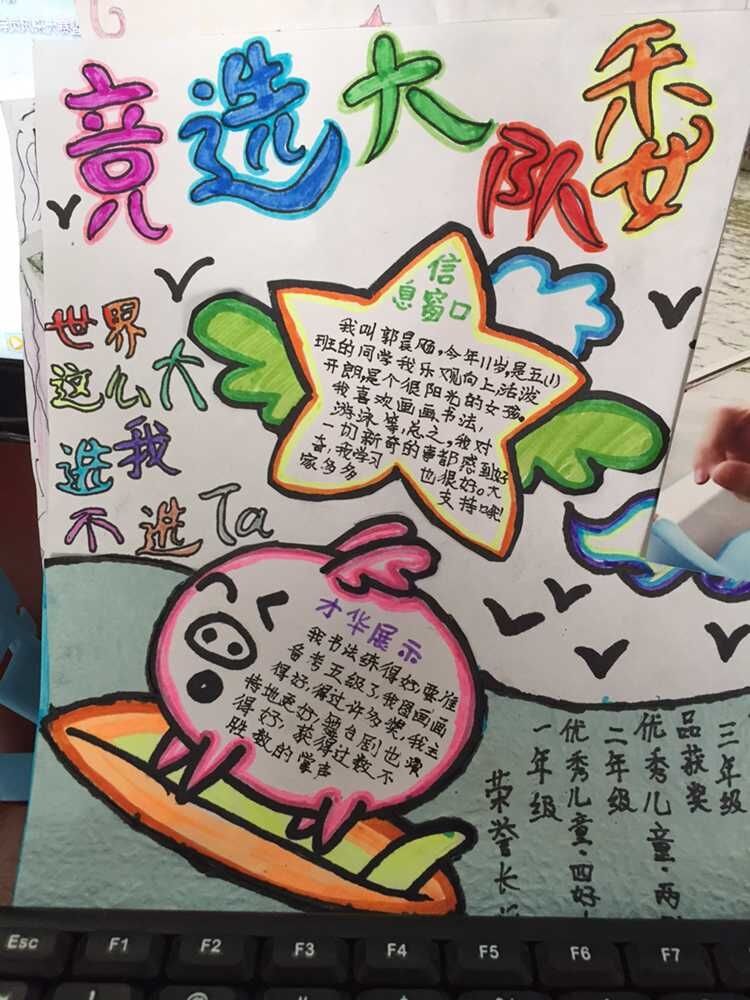 竞选大队委
世界
这么大
选我
不选Ta
信
息窗口
我叫郭晨飏,今年11岁,是五(1)
班的同学我乐观向上活泼
开朗,是个很阳光的女孩。
我喜欢画画书法,
游泳等,总之,我对
一切新奇的事都感到好
奇,我学习也很好。大
家多多支持哦!
才华展示
我书法练得好!要准
备考五级了,我国画画
得好,得过许多奖,我主
持地更好!舞台剧也演
得好,获得过数不
胜数的掌声
荣誉长
一年级
优秀儿童·四好
二年级
优秀儿童·两
品获奖
三年级
Esc F1 F2 F3 F4 F5 F6 F7